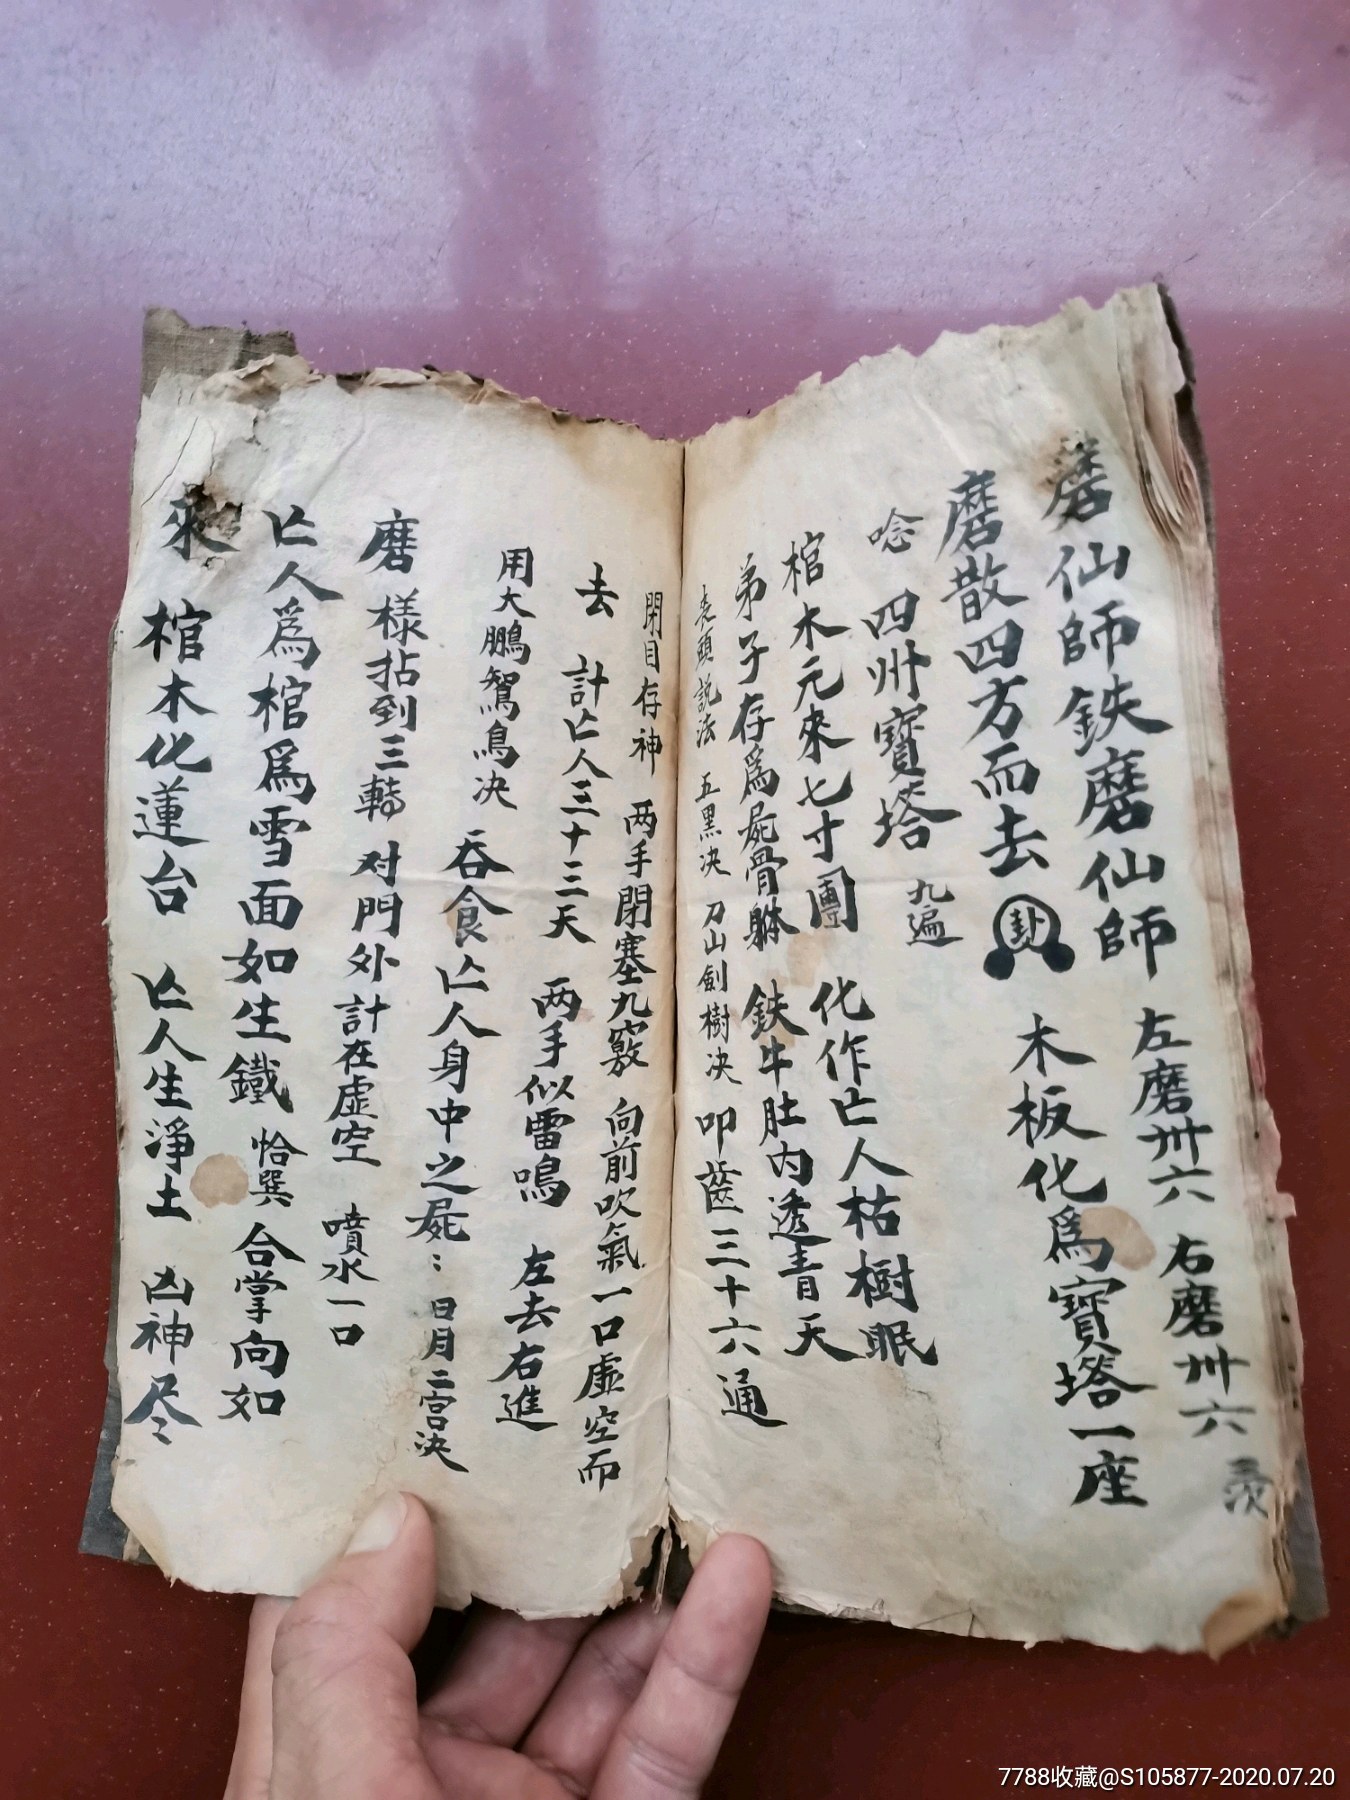 磨仙師鉄磨仙師 左磨卅六 右磨卅六
磨散四方而去 卦 木板化爲寶塔一座
唸 四州寶塔 九遍
棺木元來七寸團 化作亡人枯樹眠
弟子存爲屍骨躰 鉄牛肚内透青天
説法 五黑决 刀山劍樹决 叩齒三十六通
閉目存神 两手閉塞九竅 向前吹氣一口虚空而
去 計亡人三十三天 两手似雷鳴 左去右進
用大鵬鴛鳥决 吞食亡人身中之屍：日月二宫决
磨樣拈到三轉 对門外計在虚空 噴水一口
亡人爲棺爲雪面如生鐵 恰巽合掌向如
來 棺木化蓮台 亡人生淨土 凶神尽
7788收藏@S105877-2020.07.20